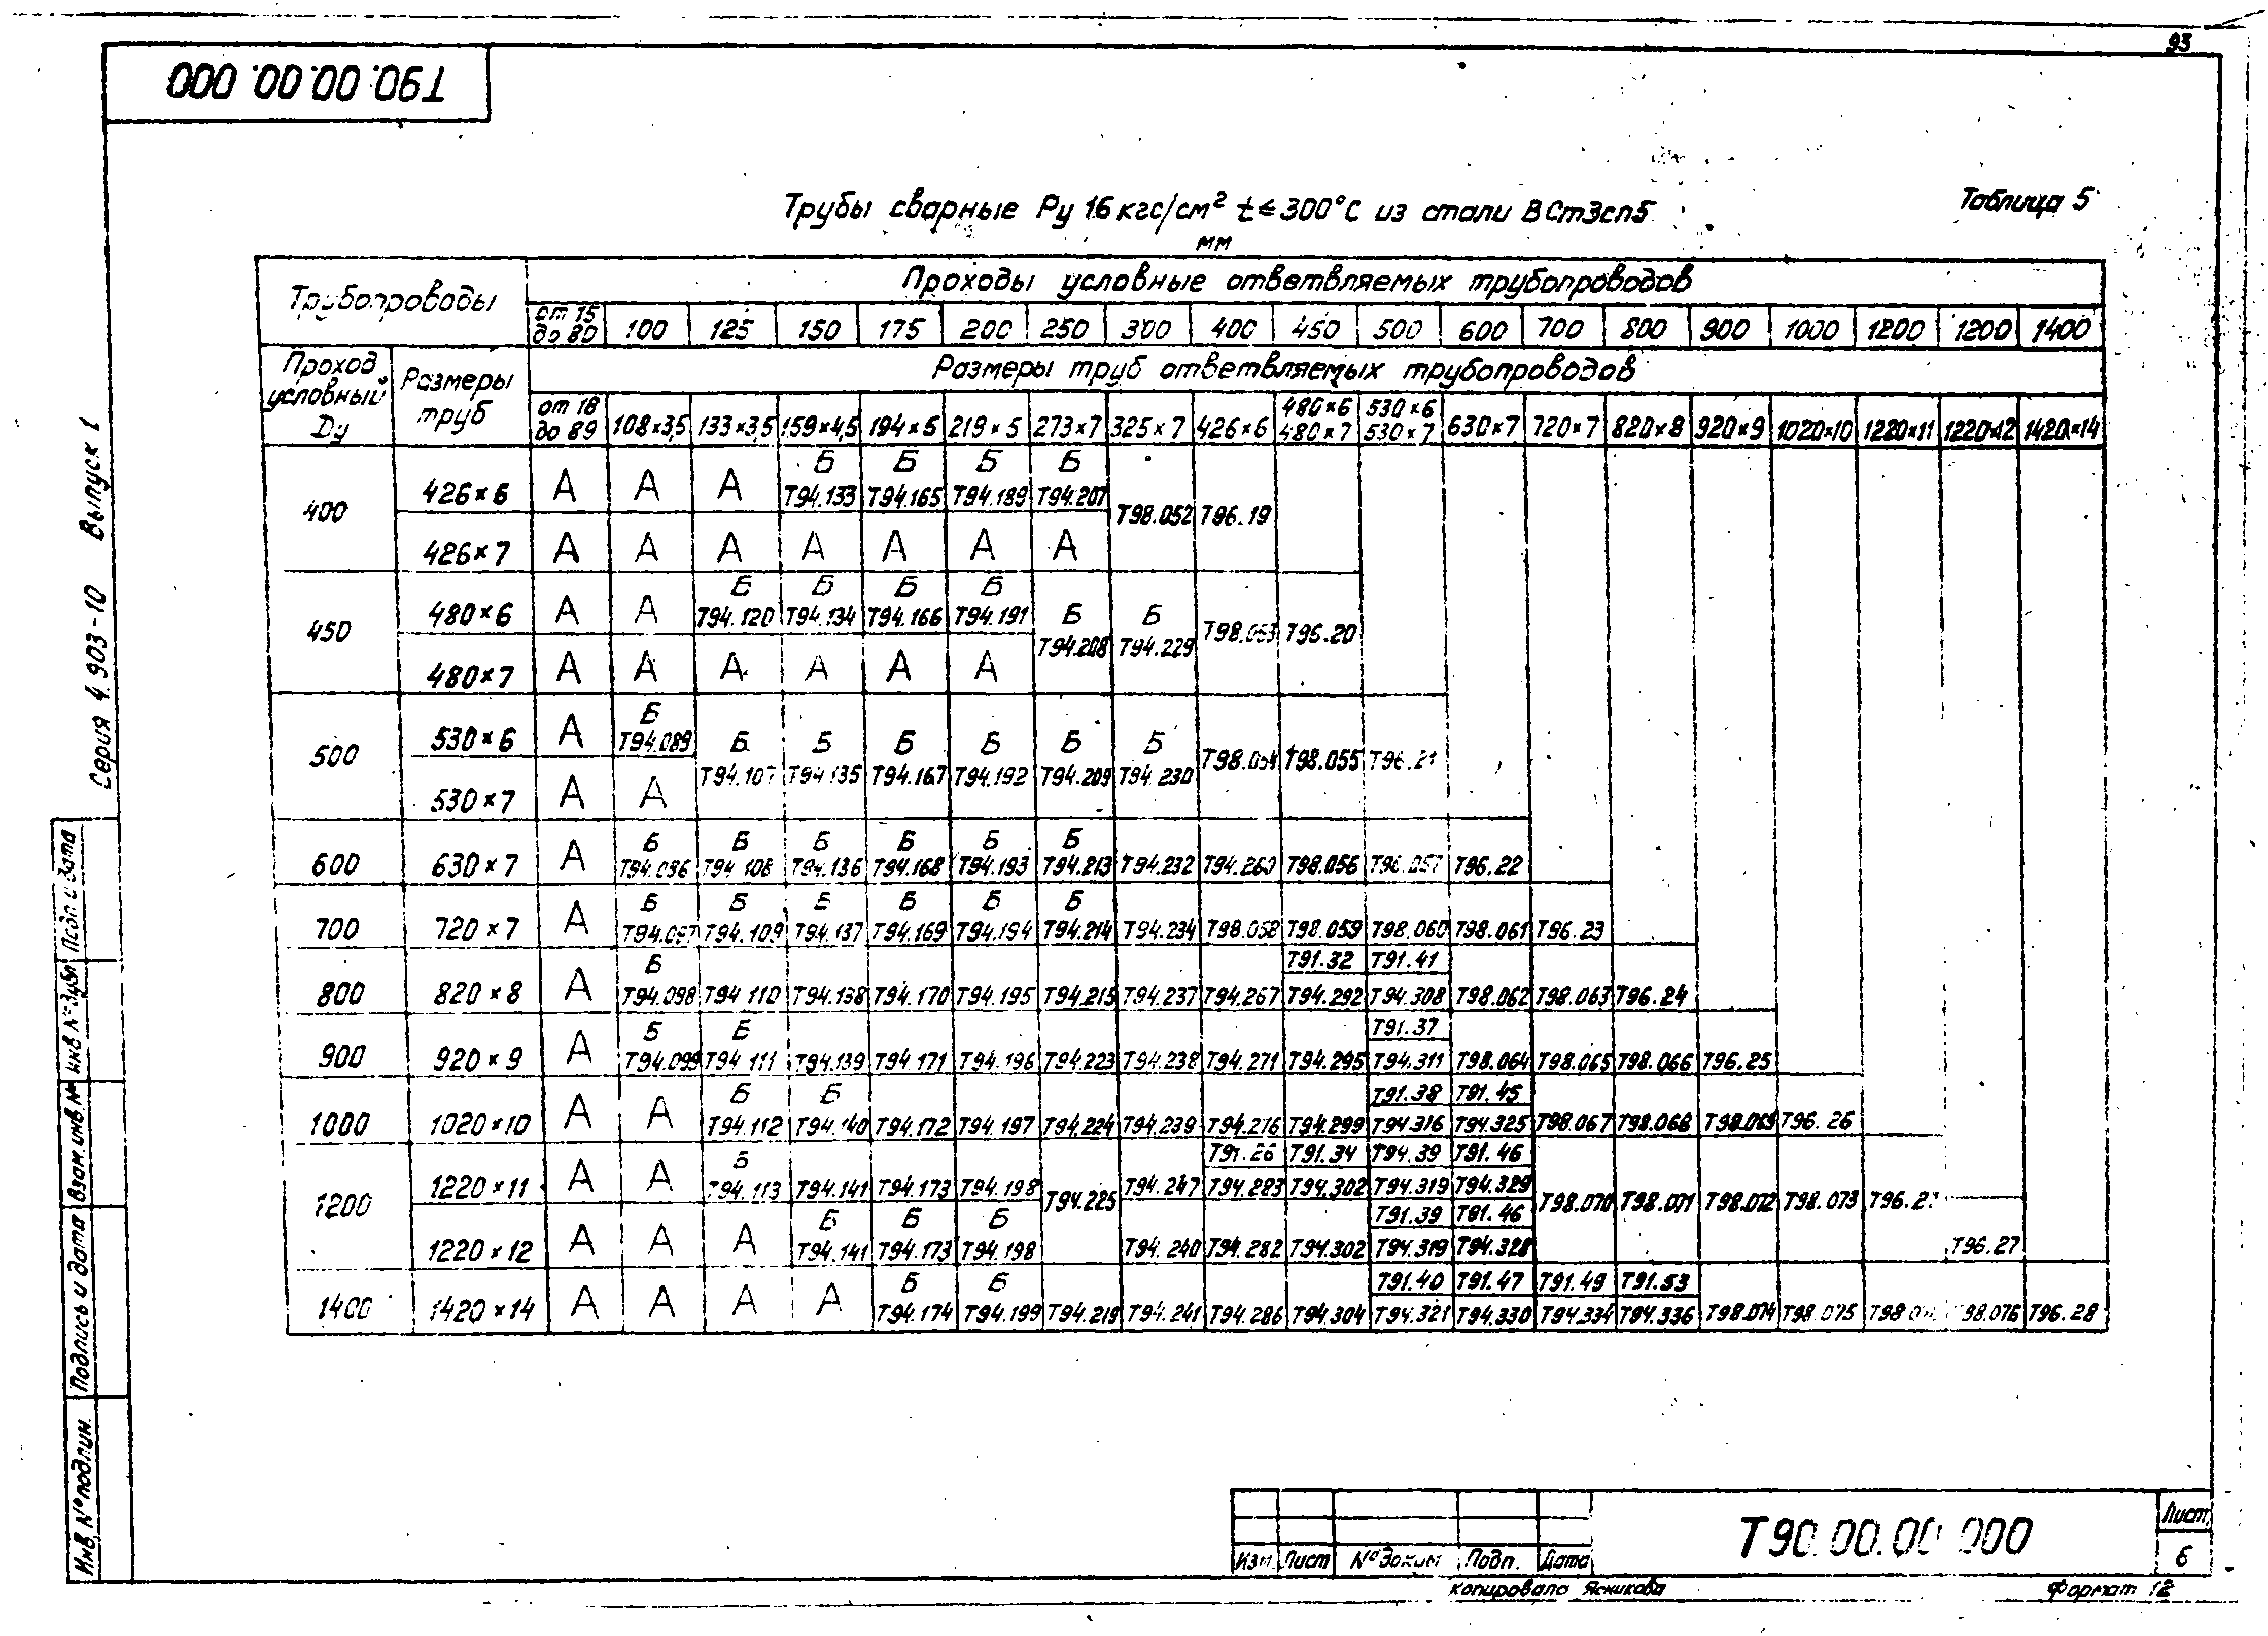 93
Т90.00.00.000
Трубы сварные Ру 16 кгс/см² t ≤ 300°С из стали ВСт3сп5
Таблица 5
мм
Трубопроводы
Проходы условные ответвляемых трубопроводов
от 15 до 80 100 125 150 175 200 250 300 400 450 500 600 700 800 900 1000 1200 1200 1400
Проход условный Dу
Размеры труб
Размеры труб ответвляемых трубопроводов
от 18 до 89 108×3,5 133×3,5 159×4,5 194×5 219×5 273×7 325×7 426×6 480×6 480×7 530×6 530×7 630×7 720×7 820×8 920×9 1020×10 1220×11 1220×12 1420×14
400
426×6 А А А Б Т94.133 Б Т94.165 Б Т94.189 Б Т94.207 Т98.052 Т96.19
426×7 А А А А А А А
450
480×6 А А Б Т94.120 Б Т94.134 Б Т94.166 Б Т94.191 Б Т94.208 Б Т94.229 Т98.053 Т96.20
480×7 А А А А А А
500
530×6 А Б Т94.089 Б Т94.107 Б Т94.135 Б Т94.167 Б Т94.192 Б Т94.209 Б Т94.230 Т98.054 Т98.055 Т96.21
530×7 А А
600 630×7 А Б Т94.096 Б Т94.108 Б Т94.136 Б Т94.168 Б Т94.193 Б Т94.213 Т94.232 Т94.260 Т98.056 Т98.057 Т96.22
700 720×7 А Б Т94.097 Б Т94.109 Б Т94.137 Б Т94.169 Б Т94.194 Б Т94.214 Т94.234 Т98.058 Т98.059 Т98.060 Т98.061 Т96.23
Т91.32 Т91.41
800 820×8 А Б Т94.098 Т94.110 Т94.138 Т94.170 Т94.195 Т94.215 Т94.237 Т94.267 Т94.292 Т94.308 Т98.062 Т98.063 Т96.24
Т91.37
900 920×9 А Б Т94.099 Б Т94.111 Т94.139 Т94.171 Т94.196 Т94.223 Т94.238 Т94.271 Т94.295 Т94.311 Т98.064 Т98.065 Т98.066 Т96.25
Т91.38 Т91.45
1000 1020×10 А А Б Т94.112 Б Т94.140 Т94.172 Т94.197 Т94.224 Т94.239 Т94.276 Т94.299 Т94.316 Т94.325 Т98.067 Т98.068 Т98.069 Т96.26
1200
Т91.26 Т91.34 Т94.39 Т91.46
1220×11 А А Б Т94.113 Т94.141 Т94.173 Т94.198 Т94.225 Т94.247 Т94.283 Т94.302 Т94.319 Т94.329 Т98.070 Т98.071 Т98.072 Т98.073
Т91.39 Т81.46
1220×12 А А А Б Т94.141 Б Т94.173 Б Т94.198 Т94.240 Т94.282 Т94.302 Т94.319 Т94.328 Т96.27
Т91.40 Т91.47 Т91.49 Т91.53
1400 1420×14 А А А А Б Т94.174 Б Т94.199 Т94.219 Т94.241 Т94.286 Т94.304 Т94.321 Т94.330 Т94.334 Т94.336 Т98.074 Т98.075 Т98.076 Т96.28
Серия 4.903-10 Выпуск 1
Инв.№подлин. Подпись и дата Взам.инв.№ Инв.№дубл Подп и дата
Изм. Лист №докум Подп. Дата
Т90.00.00 000
Лист
6
копировала Ясникова
Формат 12